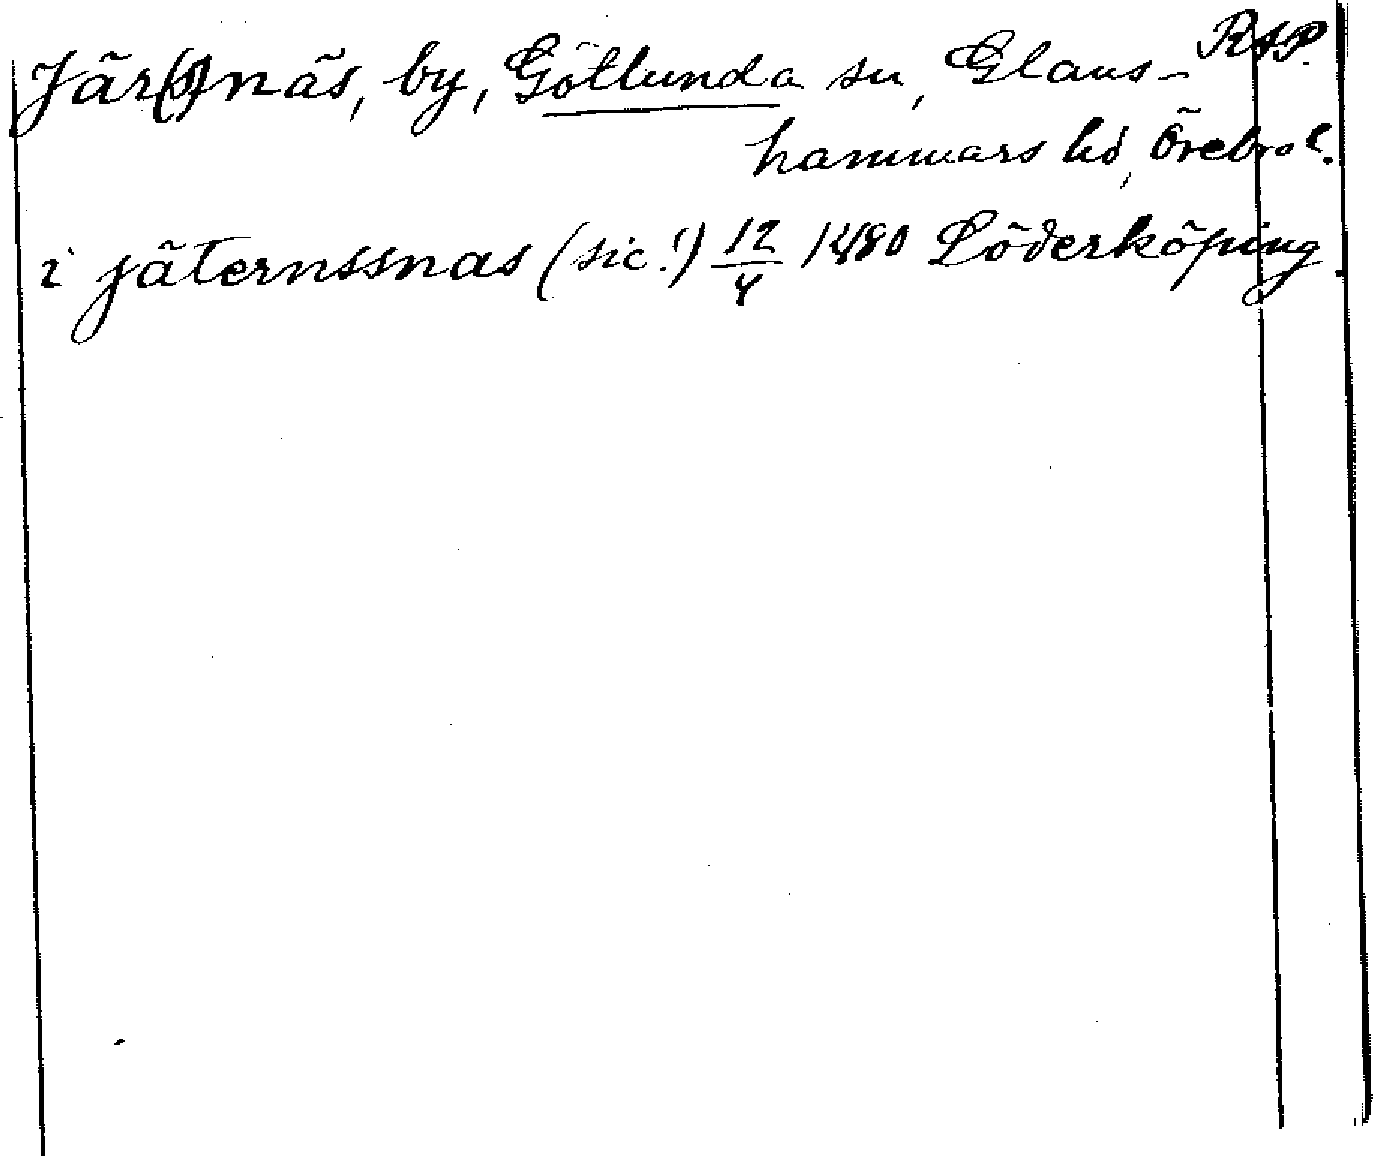 RAP.
Jär(s)näs, by, Götlunda sn, Glans-
hammars hd, Örebro l.
i jäternssnas (sic!) 12/4 1480 Söderköping.